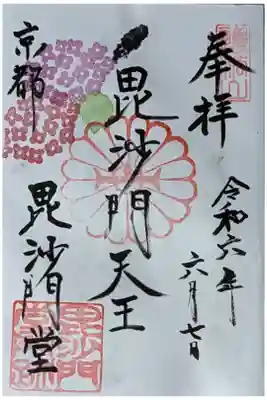 奉拝
令和六年
六月七日
毘沙門天王
京都
毘沙門堂